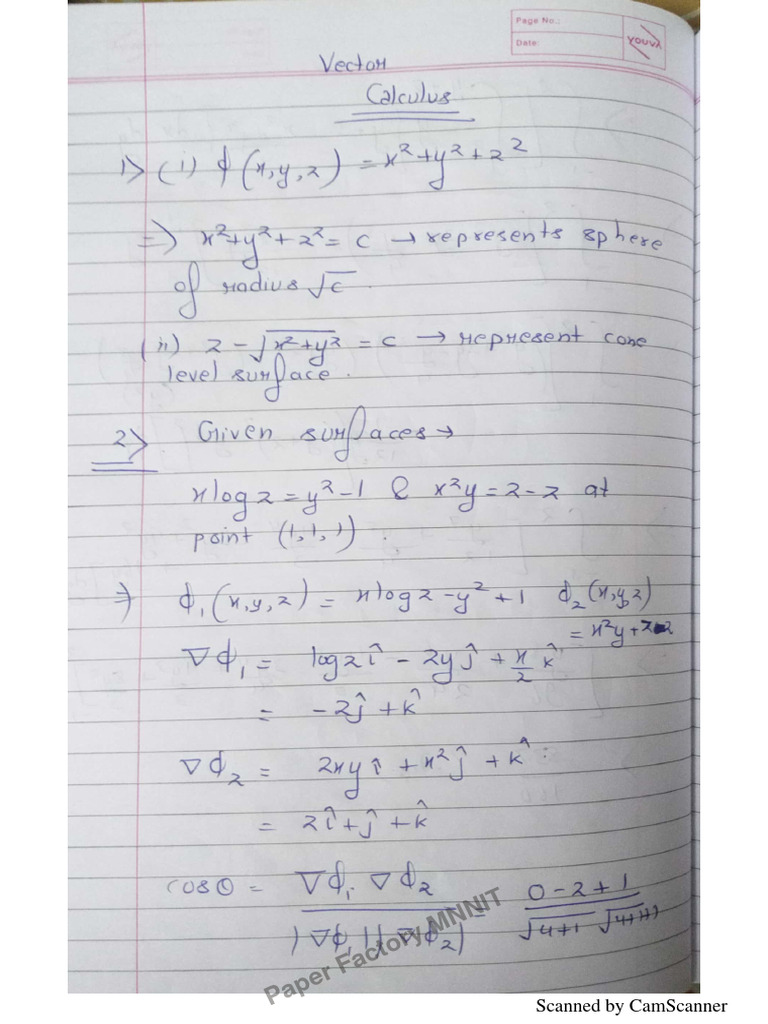 Page No.:
Date:
YOUVA
Vector
Calculus
1> (i) ϕ(x,y,z) = x²+y²+z²
=> x²+y²+z² = c → represents sphere
of radius √c.
(ii) z - √x²+y² = c → represent cone
level surface.
2> Given surfaces →
x log z = y²-1 & x²y = 2-z at
point (1,1,1).
=> ϕ₁(x,y,z) = x log z - y² + 1 ϕ₂(x,y,z)
= x²y + z-2
∇ϕ₁ = log z î - 2y ĵ + x/z k̂
= -2ĵ + k̂
∇ϕ₂ = 2xy î + x² ĵ + k̂.
= 2î + ĵ + k̂
cosθ = ∇ϕ₁.∇ϕ₂ / |∇ϕ₁||∇ϕ₂| = 0-2+1 / √4+1 √4+1+1
Paper Factory MNNIT
Scanned by CamScanner